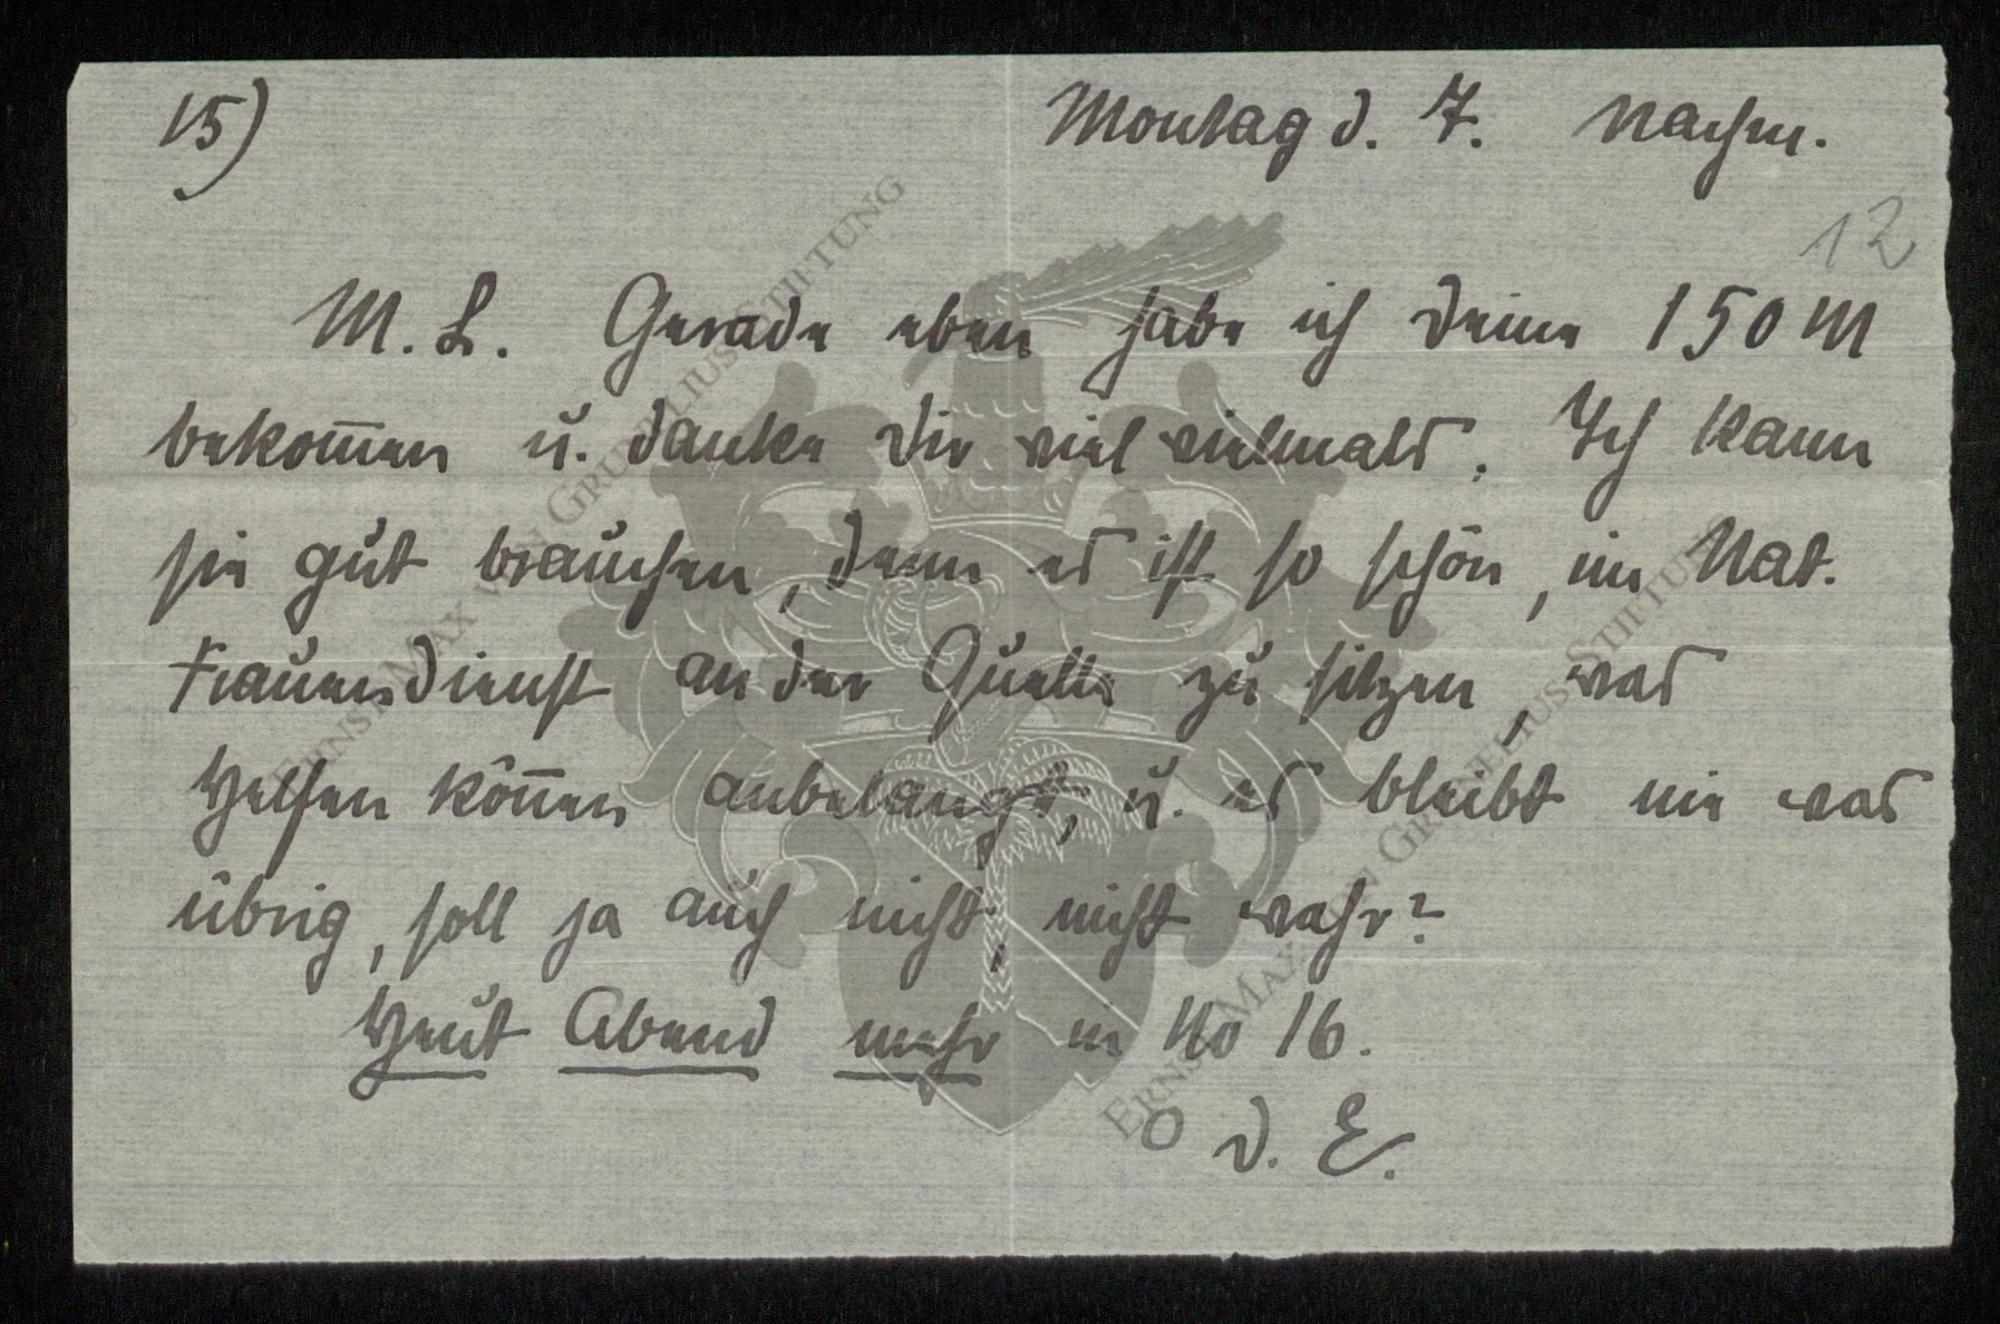 15) Montag d. 7. Nachm.
12
M. L. Gerade eben habe ich Deine 150 M
bekom̅en u. danke Dir viel vielmals. Ich kann
sie gut brauchen, denn es ist so schön, im Nat.
Frauendienst an der Quelle zu sitzen, was
Helfen kön̅en anbelangt, u. es bleibt nie was
übrig, soll ja auch nicht, nicht wahr?
Heut Abend mehr in No 16.
O D. E.
ERNST MAX VON GRUNELIUS-STIFTUNG
ERNST MAX VON GRUNELIUS-STIFTUNG